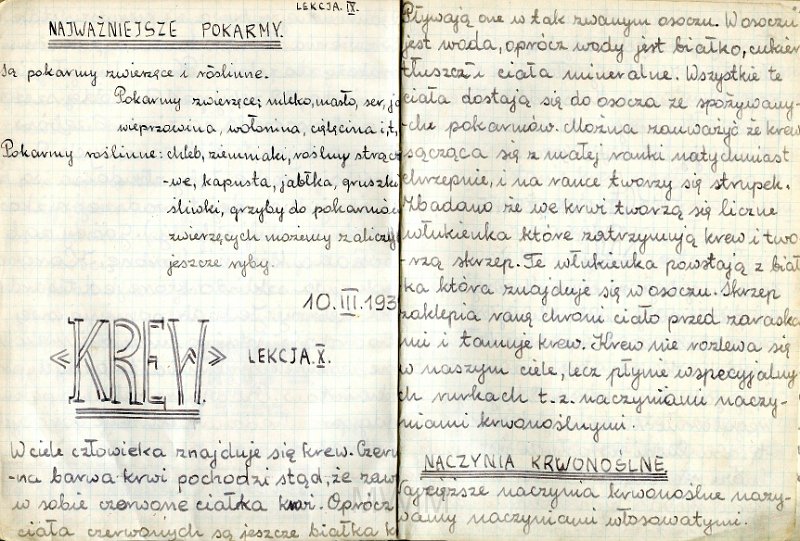 LEKCJA. IX.
NAJWAŻNIEJSZE POKARMY.
Są pokarmy zwierzęce i roślinne.
Pokarmy zwierzęce; mleko, masło, ser, ja
wieprzowina, wołonina, cięlęcina i.t,
Pokarmy roślinne: chleb, ziemniaki, rośliny strącz
-we, kapusta, jabłka, gruszki
śliwki, grzyby do pokarmów
zwierzęcych możemy zaliczyć
jeszcze ryby.
10. III. 193
«KREW.»
LEKCJA. X.
W ciele człowieka znajduje się krew. Czerw
-na barwa krwi pochodzi stąd, że zaw
w sobie czerwone ciałka krwi. Oprócz
ciała czerwonych są jeszcze białka k
Pływają one w tak zwanym osoczu. W osoczu
jest woda, oprócz wody jest białko, cukier
tłuszcz i ciała mineralne. Wszystkie te
ciała dostają się do osocza ze spożywany-
-ch pokarmów. Można zauważyć że krew
sącząca się z małej ranki natychmiast
chrzepnie, i na rance tworzy się strupek.
Zbadano że we krwi tworzą się liczne
włukienka które zatrzymują krew i two-
-rzą skrzep. Te włukienka powstają z biał
ka która znajduje się w osoczu. Skrzep
zaklepia ranę chroni ciało przed zaraska
mi i tamuje krew. Krew nie rozlewa się
w naszym ciele, lecz płynie w specyjalny-
ch rurkach t.z. naczyniami naczy-
niami krwonośnymi.
NACZYNIA KRWONOŚLNE
naczynia krwonoślne nazy-
wamy naczyniami włosowatymi.